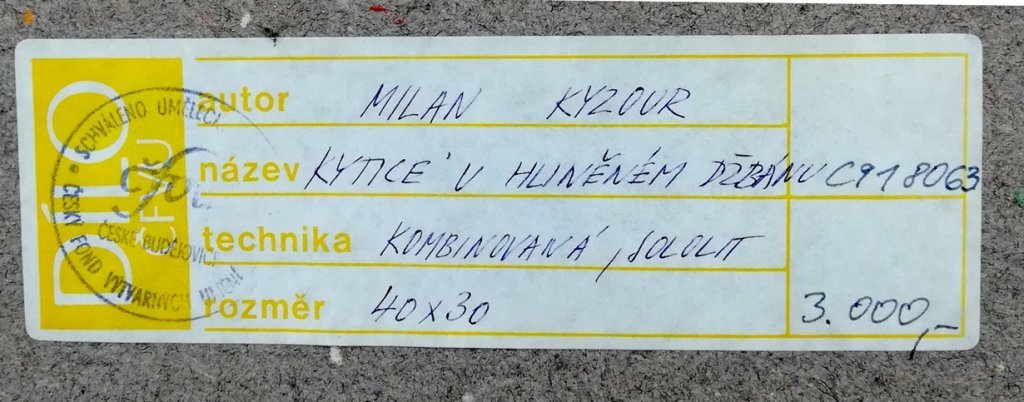 DÍLO
ČFVU
SCHVÁLENO UMĚLECK
ČESKÉ BUDĚJOVICE
ČESKÝ FOND VÝTVARNÝCH
autor MILAN KYZOUR
název KYTICE V HLINĚNÉM DŽBÁNU C918063
technika KOMBINOVANÁ, SOLOLIT
rozměr 40x30
3.000,-